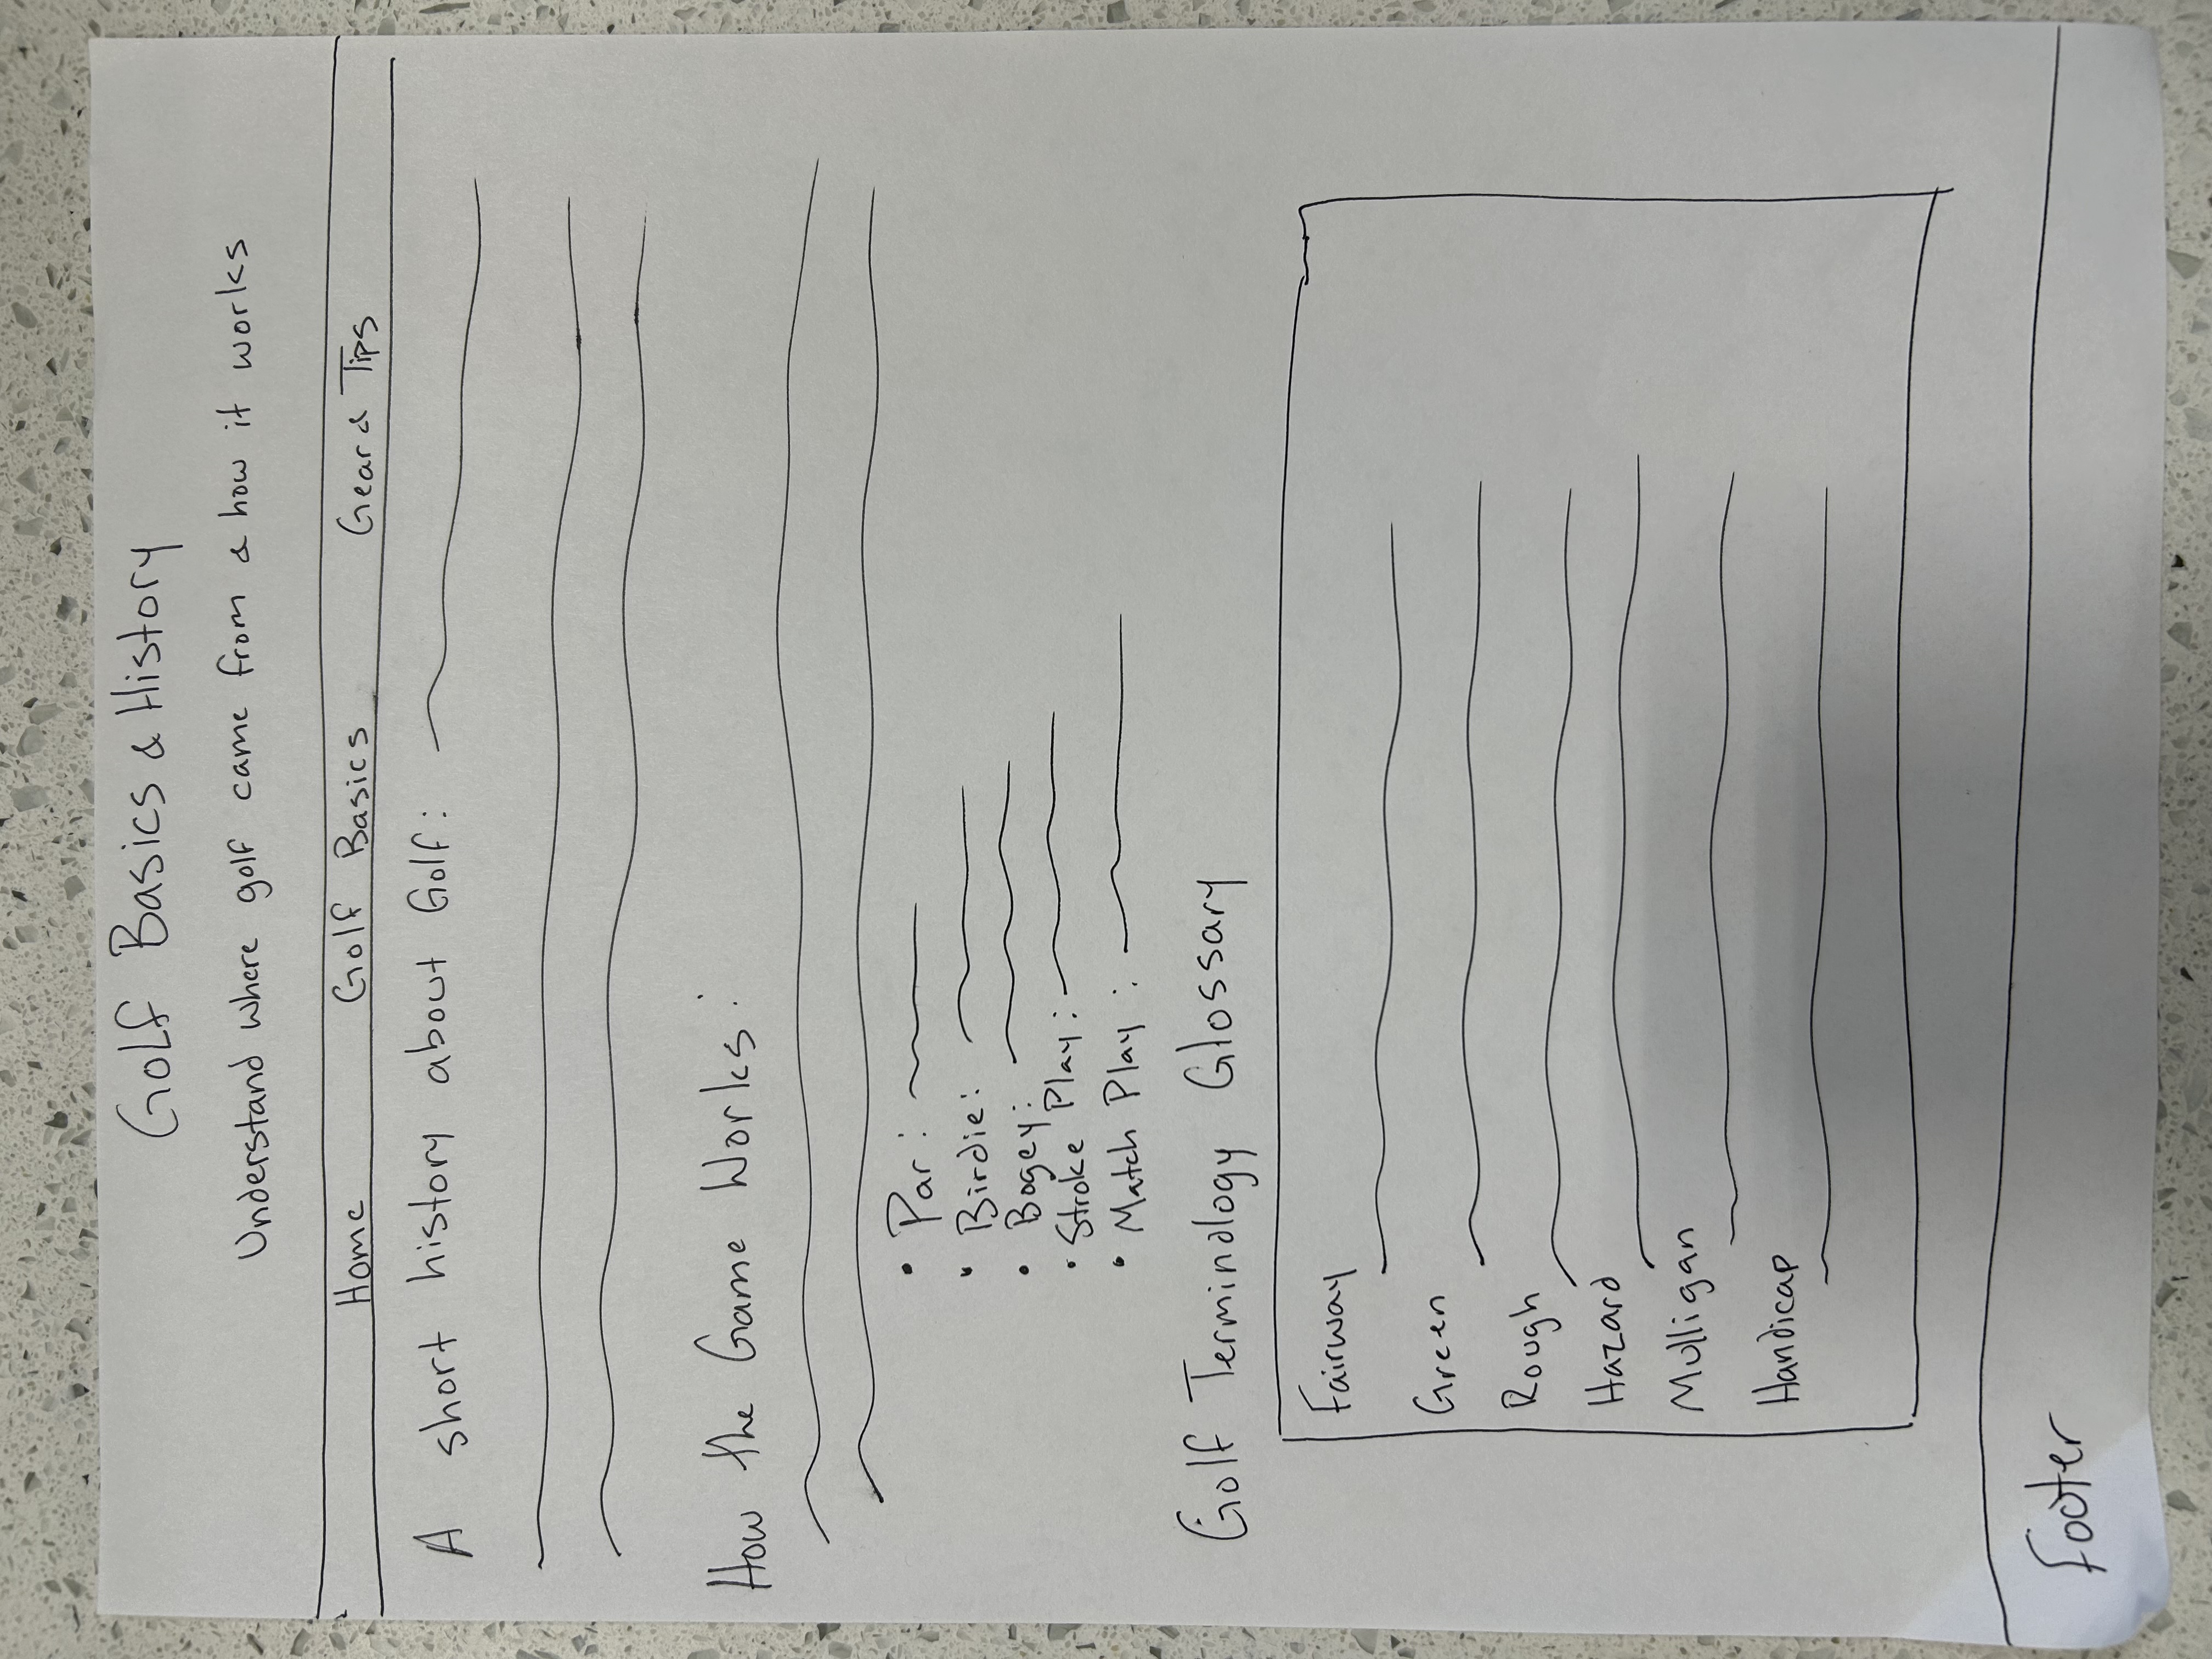 Golf Basics & History
Understand where golf came from & how it works
Home Golf Basics Gear & Tips
A short history about Golf:
How the Game Works:
• Par:
• Birdie:
• Bogey:
• Stroke Play:
• Match Play:
Golf Terminology Glossary
Fairway
Green
Rough
Hazard
Mulligan
Handicap
Footer